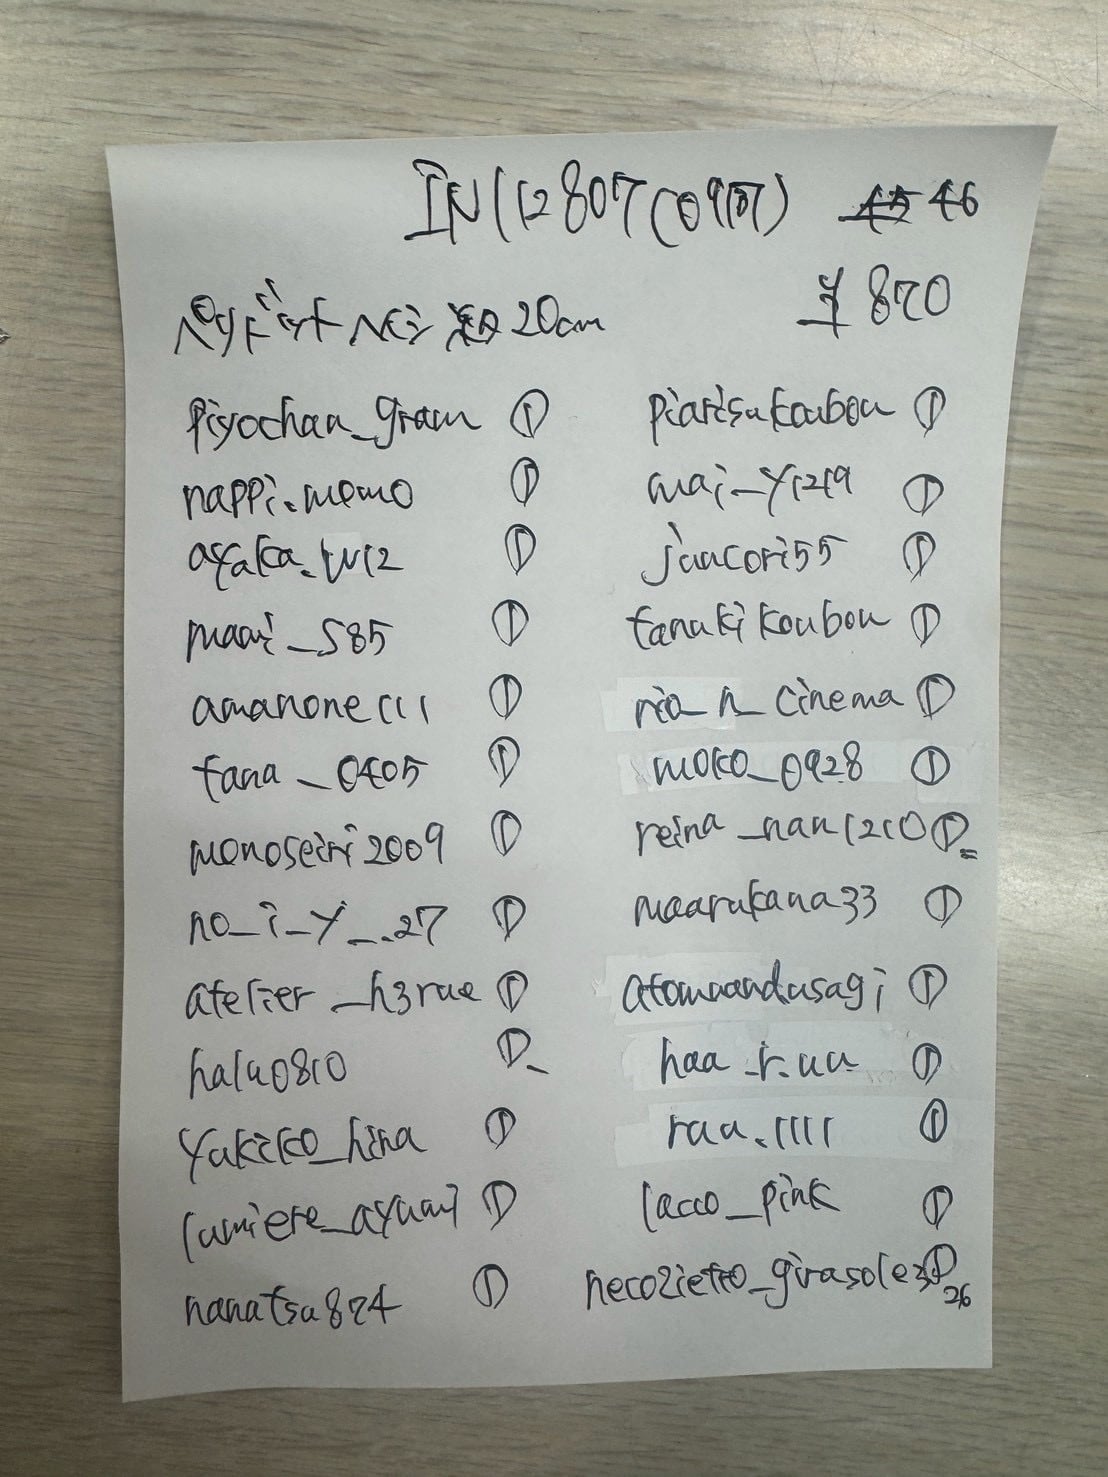 IN112807(0917) 46
¥870
20cm
piyochan_gram ①
nappi.momo ①
ayaka.w12 ①
maai_585 ①
amanone111 ①
tana_0405 ①
monoseiri2009 ①
no_i_y__.27 ①
atelier_h3rue ①
halu0810 ①
yukiko_hina ①
lumiere_ayumi ①
nanatsu874 ①
piarisukoubou ①
mai_y1219 ①
juncori55 ①
tanukikoubou ①
rio_n_cinema ①
moko_0928 ①
reina_nan1210 ①
maarukana33 ①
atomuandusagi ①
haa_r.uu ①
ruu.1111 ①
lacco_pink ①
①
26